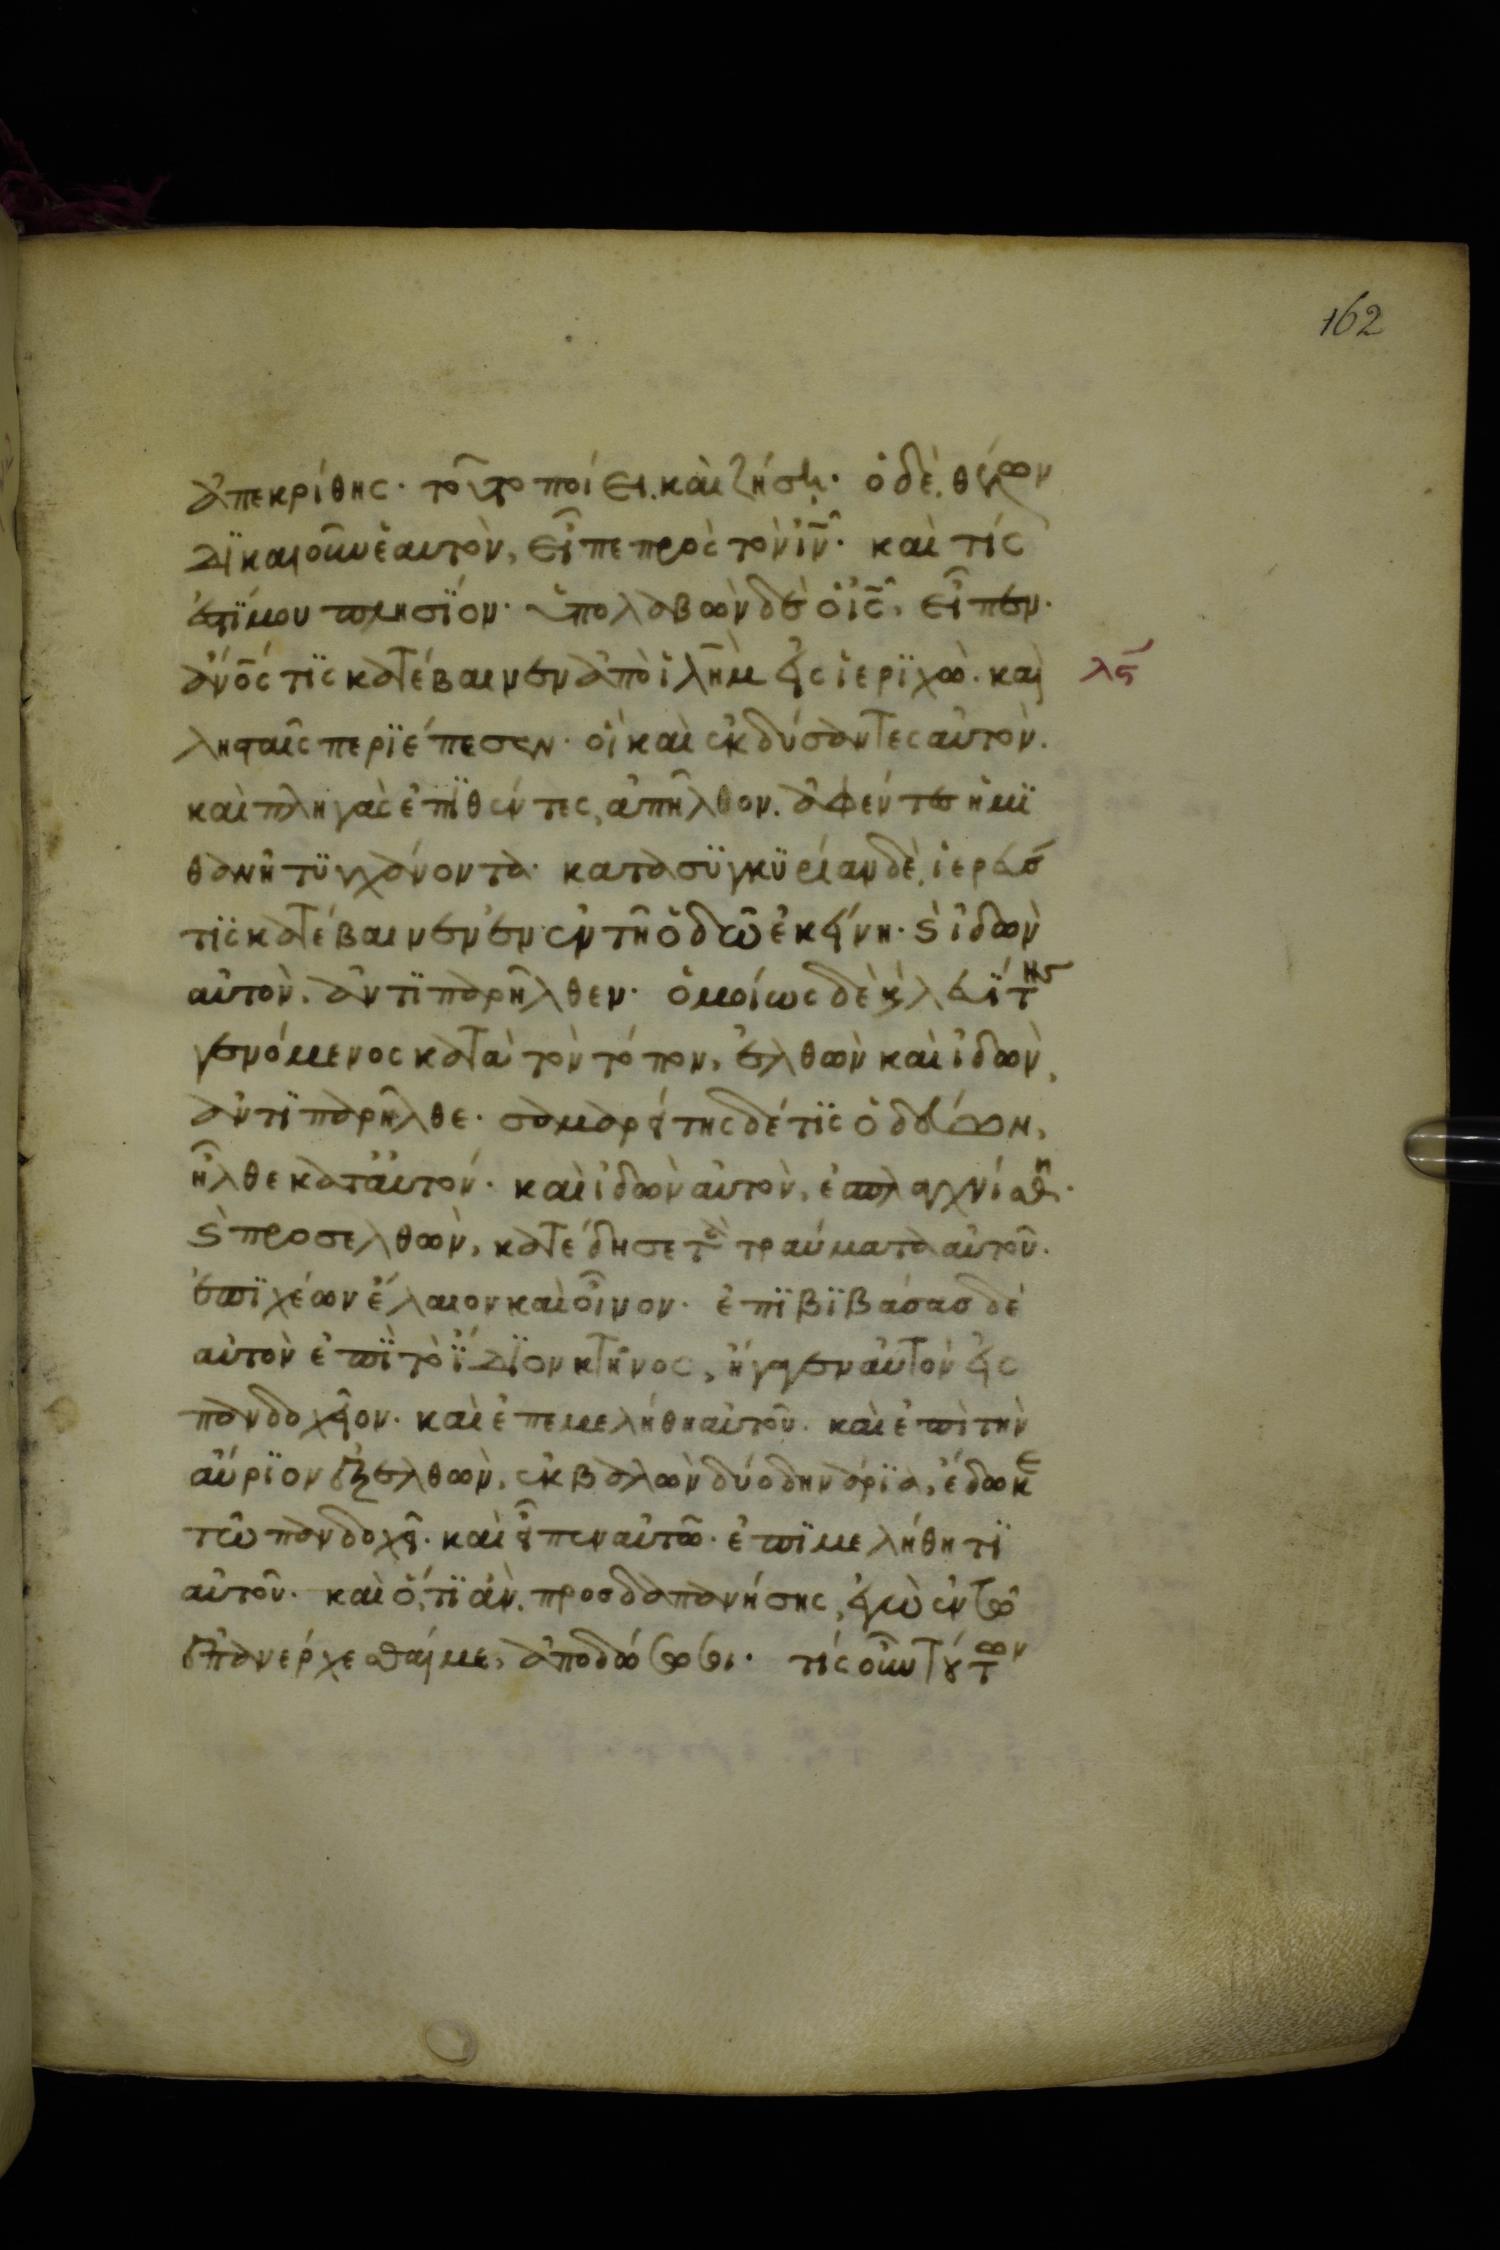 162
ἀπεκρίθης· τοῦτο ποίει. καὶ ζήση· ὁ δὲ, θέλων
δϊκαιοῦν ἑαυτὸν, εἶπε πρὸς τὸν ἰν̄· καὶ τίς
ἐστϊ μου πλησϊόν· ὑπολαβὼν δὲ ὁ ἰς̄, εἶπεν·
ἄνο̄ς τϊς κατέβαινεν ἀπὸ ἰλη̄μ εἰς ἱερϊχώ. καὶ
λησταῖς περϊέπεσεν· οἳ καὶ ἐκδύσαντες αὐτὸν.
καὶ πληγὰς ἐπϊθέντες, ἀπῆλθον. ἀφέντες ἡμϊ
θανῆ τϋγχάνοντα· κατα σϋγκϋρίαν δὲ, ἱερεύσ
τϊς κατέβαινεν ἐν τῆ ὁδῶ ἐκείνη· ϛ̀ ἰδὼν
αὐτὸν, ἀντϊπαρῆλθεν· ὁμοίως δὲ κ̀ λευΐτης
γενόμενος κατὰ τὸν τόπον, ἐλθὼν καὶ ἰδὼν,
ἀντϊπαρῆλθε· σαμαρείτης δέ τϊς ὁδεύων,
ἦλθε κατ' αὐτόν· καὶ ἰδὼν αὐτὸν, ἐσπλαγχνίσθη·
ϛ̀ προσελθὼν, κατέδησε τὰ τραύματα αὐτοῦ.
ἐπϊχέων ἔλαιον καὶ οἶνον· ἐπϊβϊβάσασ δὲ
αὐτὸν ἐπῒ τὸ ἴδϊον κτῆνος, ἤγαγεν αὐτὸν εἰς
πανδοχεῖον· καὶ ἐπεμελήθη αὐτοῦ. καὶ ἐπὶ τὴν
αὔρϊον ἐξελθὼν, ἐκβαλὼν δύο δηνάρϊα, ἔδωκε
τῶ πανδοχεῖ· καὶ εἶπεν αὐτῶ· ἐπϊμελήθητϊ
αὐτοῦ· καὶ ὅ,τϊ ἂν προσδαπανήσης, ἐγὼ ἐν τῶ
ἐπανέρχεσθαί με, ἀποδώσω σοι· τίς οὖν τούτων
λϛ